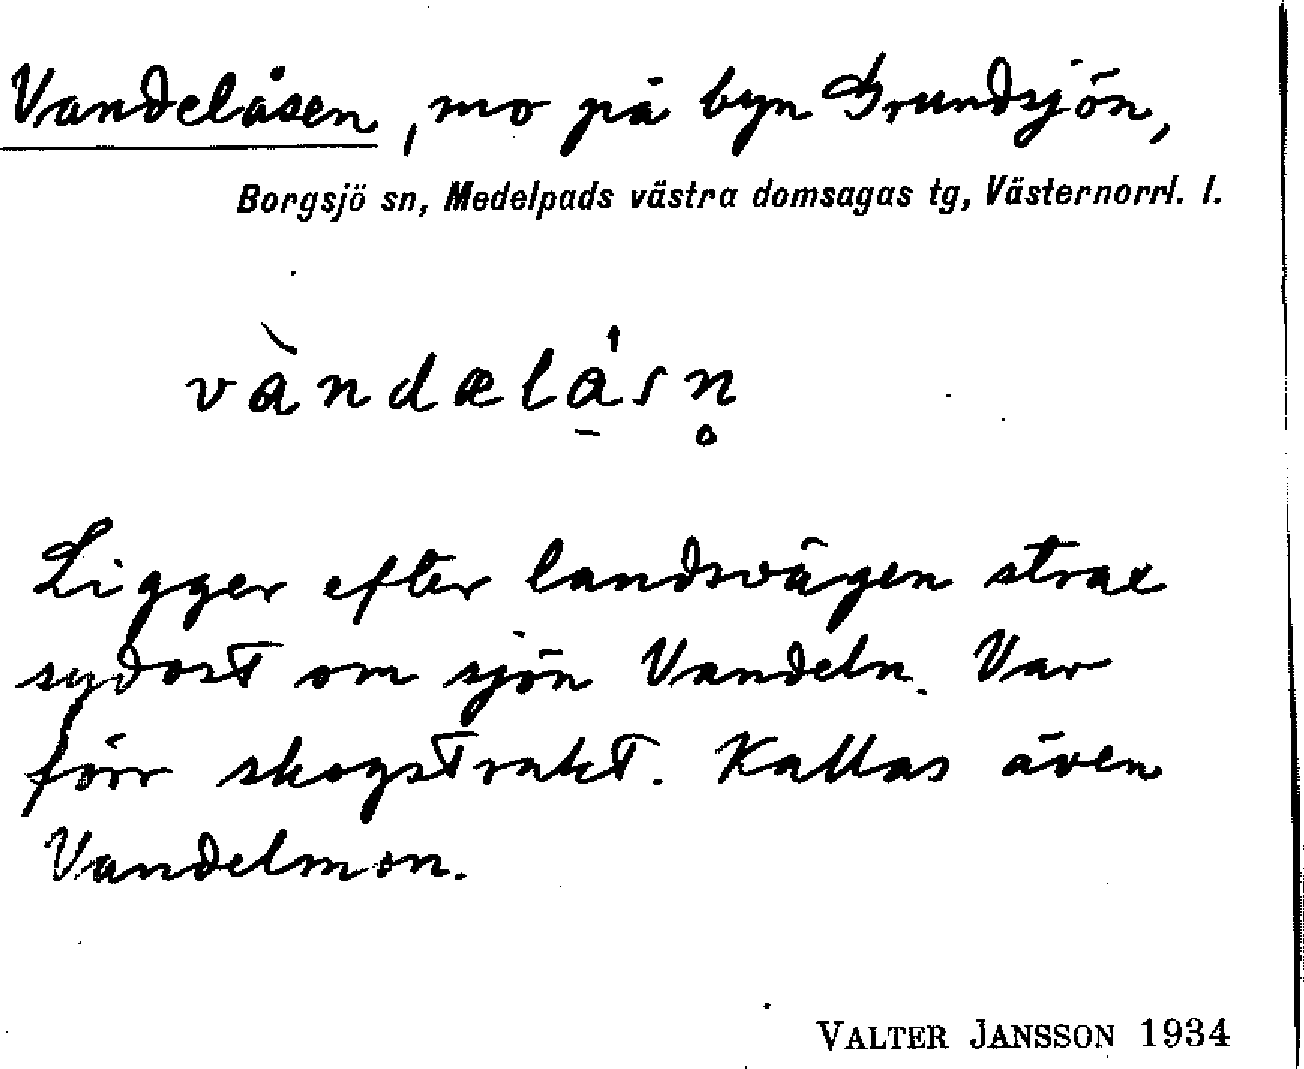 Vandelåsen, mo på byn Grundsjön,
Borgsjö sn, Medelpads västra domsagas tg, Västernorrl. l.
vàndælåsn̥
Ligger efter landsvägen strax
sydost om sjön Vandeln. Var
förr skogstrakt. Kallas även
Vandelmon.
VALTER JANSSON 1934